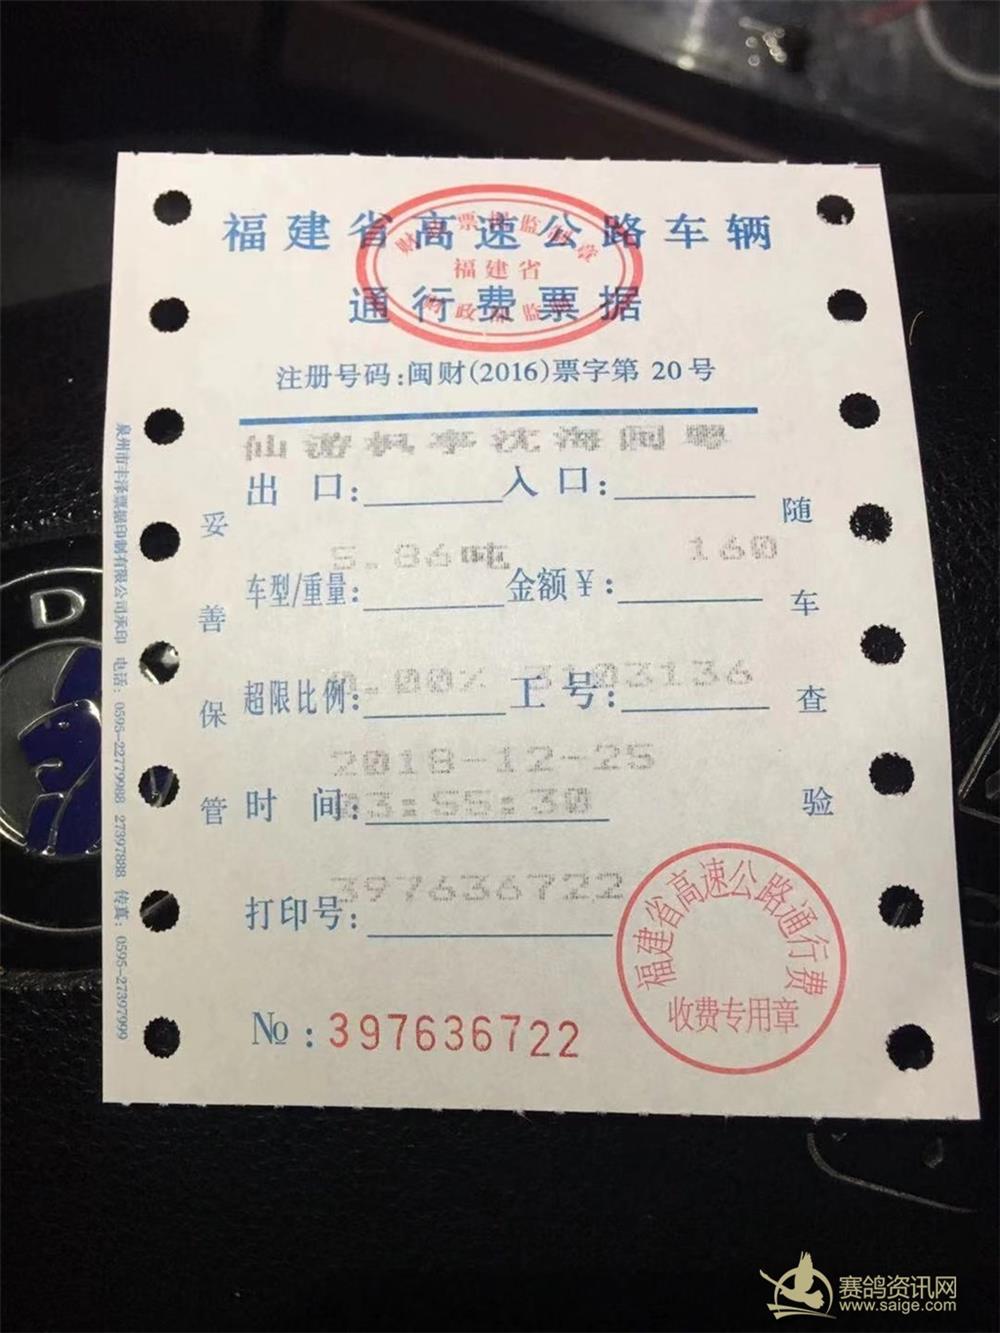 福建省高速公路车辆
通行费票据
福建省
注册号码:闽财(2016)票字第 20号
仙游枫亭沈海闽粤
出 口: 入 口:
5.86吨 160
车型/重量: 金额￥:
0.00% 3103136
超限比例: 工 号:
2018-12-25
时 间: 03:55:30
397636722
打印号:
№:397636722
福建省高速公路通行费
收费专用章
妥善保管
随车查验
泉州市丰泽票据印制有限公司承印 电话: 0595-22779988 27397888 传真: 0595-27397999
D
赛鸽资讯网
www.saige.com